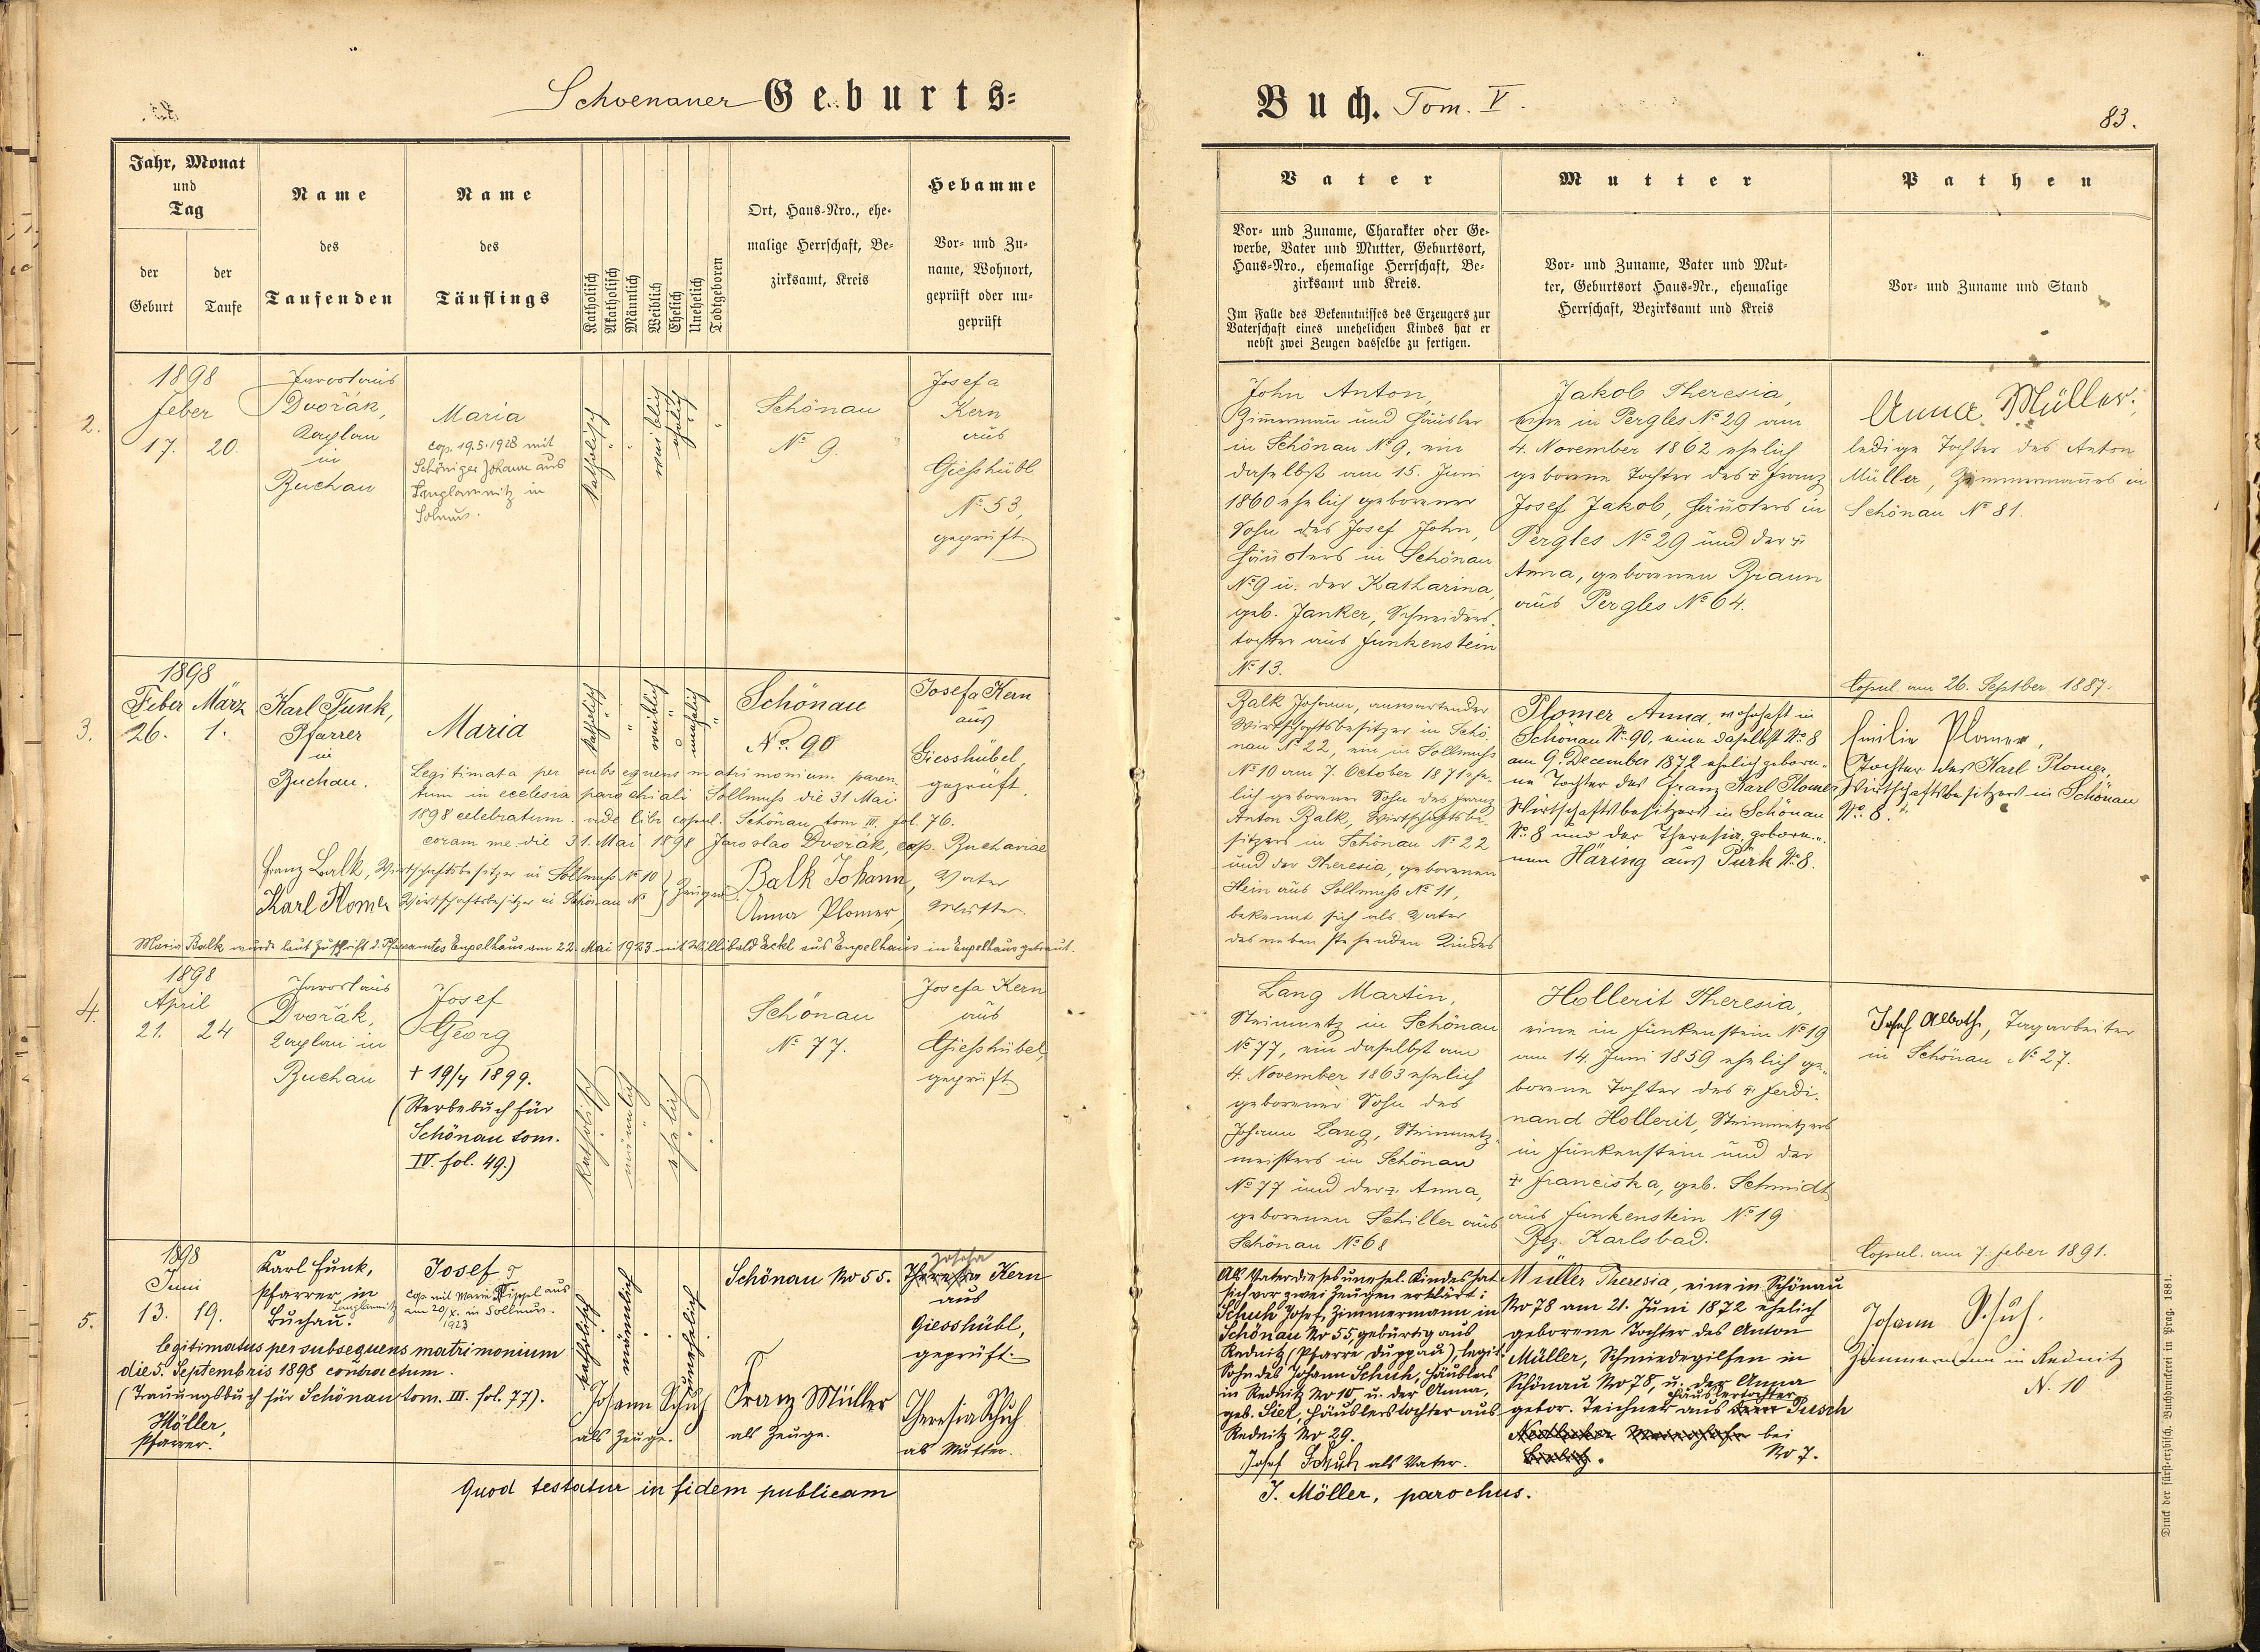 Schoenauer Geburts-
Buch. Tom. V.
83.
Jahr, Monat
und
Tag
der
Geburt
der
Taufe
Name
des
Taufenden
Name
des
Täuflings
Katholisch
Akatholisch
Männlich
Weiblich
Ehelich
Unehelich
Todtgeboren
Ort, Haus-Nro., ehe-
malige Herrschaft, Be-
zirksamt, Kreis
Hebamme
Vor- und Zu-
name, Wohnort,
geprüft oder un-
geprüft
Vater
Vor- und Zuname, Charakter oder Ge-
werbe, Vater und Mutter, Geburtsort,
Haus-Nro., ehemalige Herrschaft, Be-
zirksamt und Kreis.
Im Falle des Bekenntnisses des Erzeugers zur
Vaterschaft eines unehelichen Kindes hat er
nebst zwei Zeugen dasselbe zu fertigen.
Mutter
Vor- und Zuname, Vater und Mut-
ter, Geburtsort Haus-Nr., ehemalige
Herrschaft, Bezirksamt und Kreis
Pathen
Vor- und Zuname und Stand
2.
1898
Feber
17. 20.
Jaroslaus
Dvořák,
Kaplan
in
Buchau
Maria
cop. 19.5.1928 mit
Schöniger Johann aus
Langlamnitz in
Solmus.
katholisch
weiblich
ehelich
Schönau
No 9.
Josefa
Kern
aus
Giesshübl
No 53,
geprüft
John Anton,
Zimmermann und Häusler
in Schönau No 9, ein
daselbst am 15. Juni
1860 ehelich geborener
Sohn des Josef John,
Häuslers in Schönau
No 9 u. der Katharina,
geb. Janker, Schneiders-
tochter aus Funkenstein
No 13.
Jakob Theresia,
eine in Pergles No 29 am
4. November 1862 ehelich
geborene Tochter des + Franz
Josef Jakob, Häuslers in
Pergles No 29 und der +
Anna, geborenen Braun
aus Pergles No 64.
Anna Müller,
ledige Tochter des Anton
Müller, Zimmermannes in
Schönau No 81.
Copul. am 26. Septber 1887.
3.
1898
Feber März
26. 1.
Karl Funk,
Pfarrer
in
Buchau.
Maria
katholisch
weiblich
unehelich
Schönau
No. 90
Josefa Kern
aus
Giesshübel,
geprüft.
Legitimata per subsequens matrimonium paren-
tum in ecclesia parochiali Sollmuss die 31 Mai
1898 celebratum. vide libr copul. Schönau tom III. fol. 76.
coram me die 31. Mai 1898 Jaroslao Dvořák, cap. Buchaviae
Franz Balk, Wirtschaftsbesitzer in Sollmuss No 10
Karl Plomer Wirtschaftsbesitzer in Schönau No 8
Zeugen
Balk Johann, Vater
Anna Plomer, Mutter.
Maria Balk wurde laut Zuschrift d. Pfarramtes Engelhaus am 22. Mai 1923 mit Willibald Eckl aus Engelhaus in Engelhaus getraut.
Balk Johann, anwartender
Wirtschaftsbesitzer in Schö-
nau No 22, ein in Sollmuss
No 10 am 7. October 1871 ehe-
lich geborener Sohn des Franz
Anton Balk, Wirtschaftsbe-
sitzers in Schönau No 22
und der Theresia, geborenen
Hein aus Sollmuss No 11,
bekennt sich als Vater
des nebenstehenden Kindes
Plomer Anna, wohnhaft in
Schönau No. 90, eine daselbst No. 8
am 9. December 1872 ehelich gebore-
ne Tochter des Franz Karl Plomer
Wirtschaftsbesitzers in Schönau
No. 8 und der Theresia, gebore-
nen Häring aus Pürk No. 8.
Emilie Plomer,
Tochter des Karl Plomer,
Wirtschaftsbesitzers in Schönau
No. 8.
4.
1898
April
21. 24
Jaroslaus
Dvořák,
Kaplan in
Buchau
Josef
Georg
+ 19/4 1899.
(Sterbebuch für
Schönau tom.
IV. fol. 49.)
katholisch
männlich
ehelich
Schönau
No 77.
Josefa Kern
aus
Giesshübel,
geprüft
Lang Martin,
Steinmetz in Schönau
No 77, ein daselbst am
4. November 1863 ehelich
geborener Sohn des
Johann Lang, Steinmetz-
meisters in Schönau
No 77 und der + Anna,
geborenen Schiller aus
Schönau No 68
Hollerit Theresia,
eine in Funkenstein No 19
am 14. Juni 1859 ehelich ge-
borene Tochter des + Ferdi-
nand Hollerit, Steinmetzes
in Funkenstein und der
+ Franciska, geb. Schmidt
aus Funkenstein No 19
Bez. Karlsbad.
Josef Alboth, Tagarbeiter
in Schönau No 27.
Copul. am 7. Feber 1891.
5.
1898
Juni
13. 19.
Karl Funk,
Pfarrer in
Buchau.
Josef
cop. mit Marie Rüppel aus
Langlamnitz am 20/X. in Sollmus.
1923
katholisch
männlich
unehelich
Schönau No 55.
Josefa
Theresia Kern
aus
Giesshübl,
geprüft.
legitimatus per subsequens matrimonium
die 5. Septembris 1898 contractum.
(Trauungsbuch für Schönau tom. III. fol. 77).
Möller,
Pfarrer.
Johann Schuh
als Zeuge.
Franz Müller
als Zeuge.
Theresia Schuh
als Mutter.
Als Vater dieses unehel. Kindes hat
sich vor zwei Zeugen erklärt:
Schuh Josef, Zimmermann in
Schönau No 55, gebürtig aus
Rednitz (Pfarre Duppau), legit.
Sohn des Johann Schuh, Häuslers
in Rednitz No 10 u. der Anna,
geb. Sier, Häuslerstochter aus
Rednitz No 29.
Josef Schuh als Vater.
Müller Theresia, eine in Schönau
No 78 am 21. Juni 1872 ehelich
geborene Tochter des Anton
Müller, Schmiedegilfen in
Schönau No 78, u. der Anna
Häuslertochter
gebor. Teichner aus Pirsch
bei
No 7.
Johann Schuh.
Zimmermann in Rednitz
N. 10
Quod testatur in fidem publicam
J. Möller, parochus.
Druck der fürst-erzbisch. Buchdruckerei in Prag. 1881.